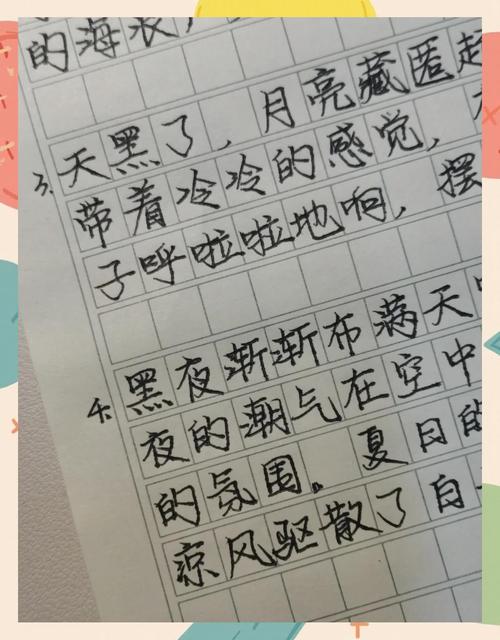 的海浪,
3. 天黑了,月亮藏匿起
带着冷冷的感觉,
子呼啦啦地响,摆
4. 黑夜渐渐布满天
夜的潮气在空中
的氛围。夏日的
凉风驱散了白